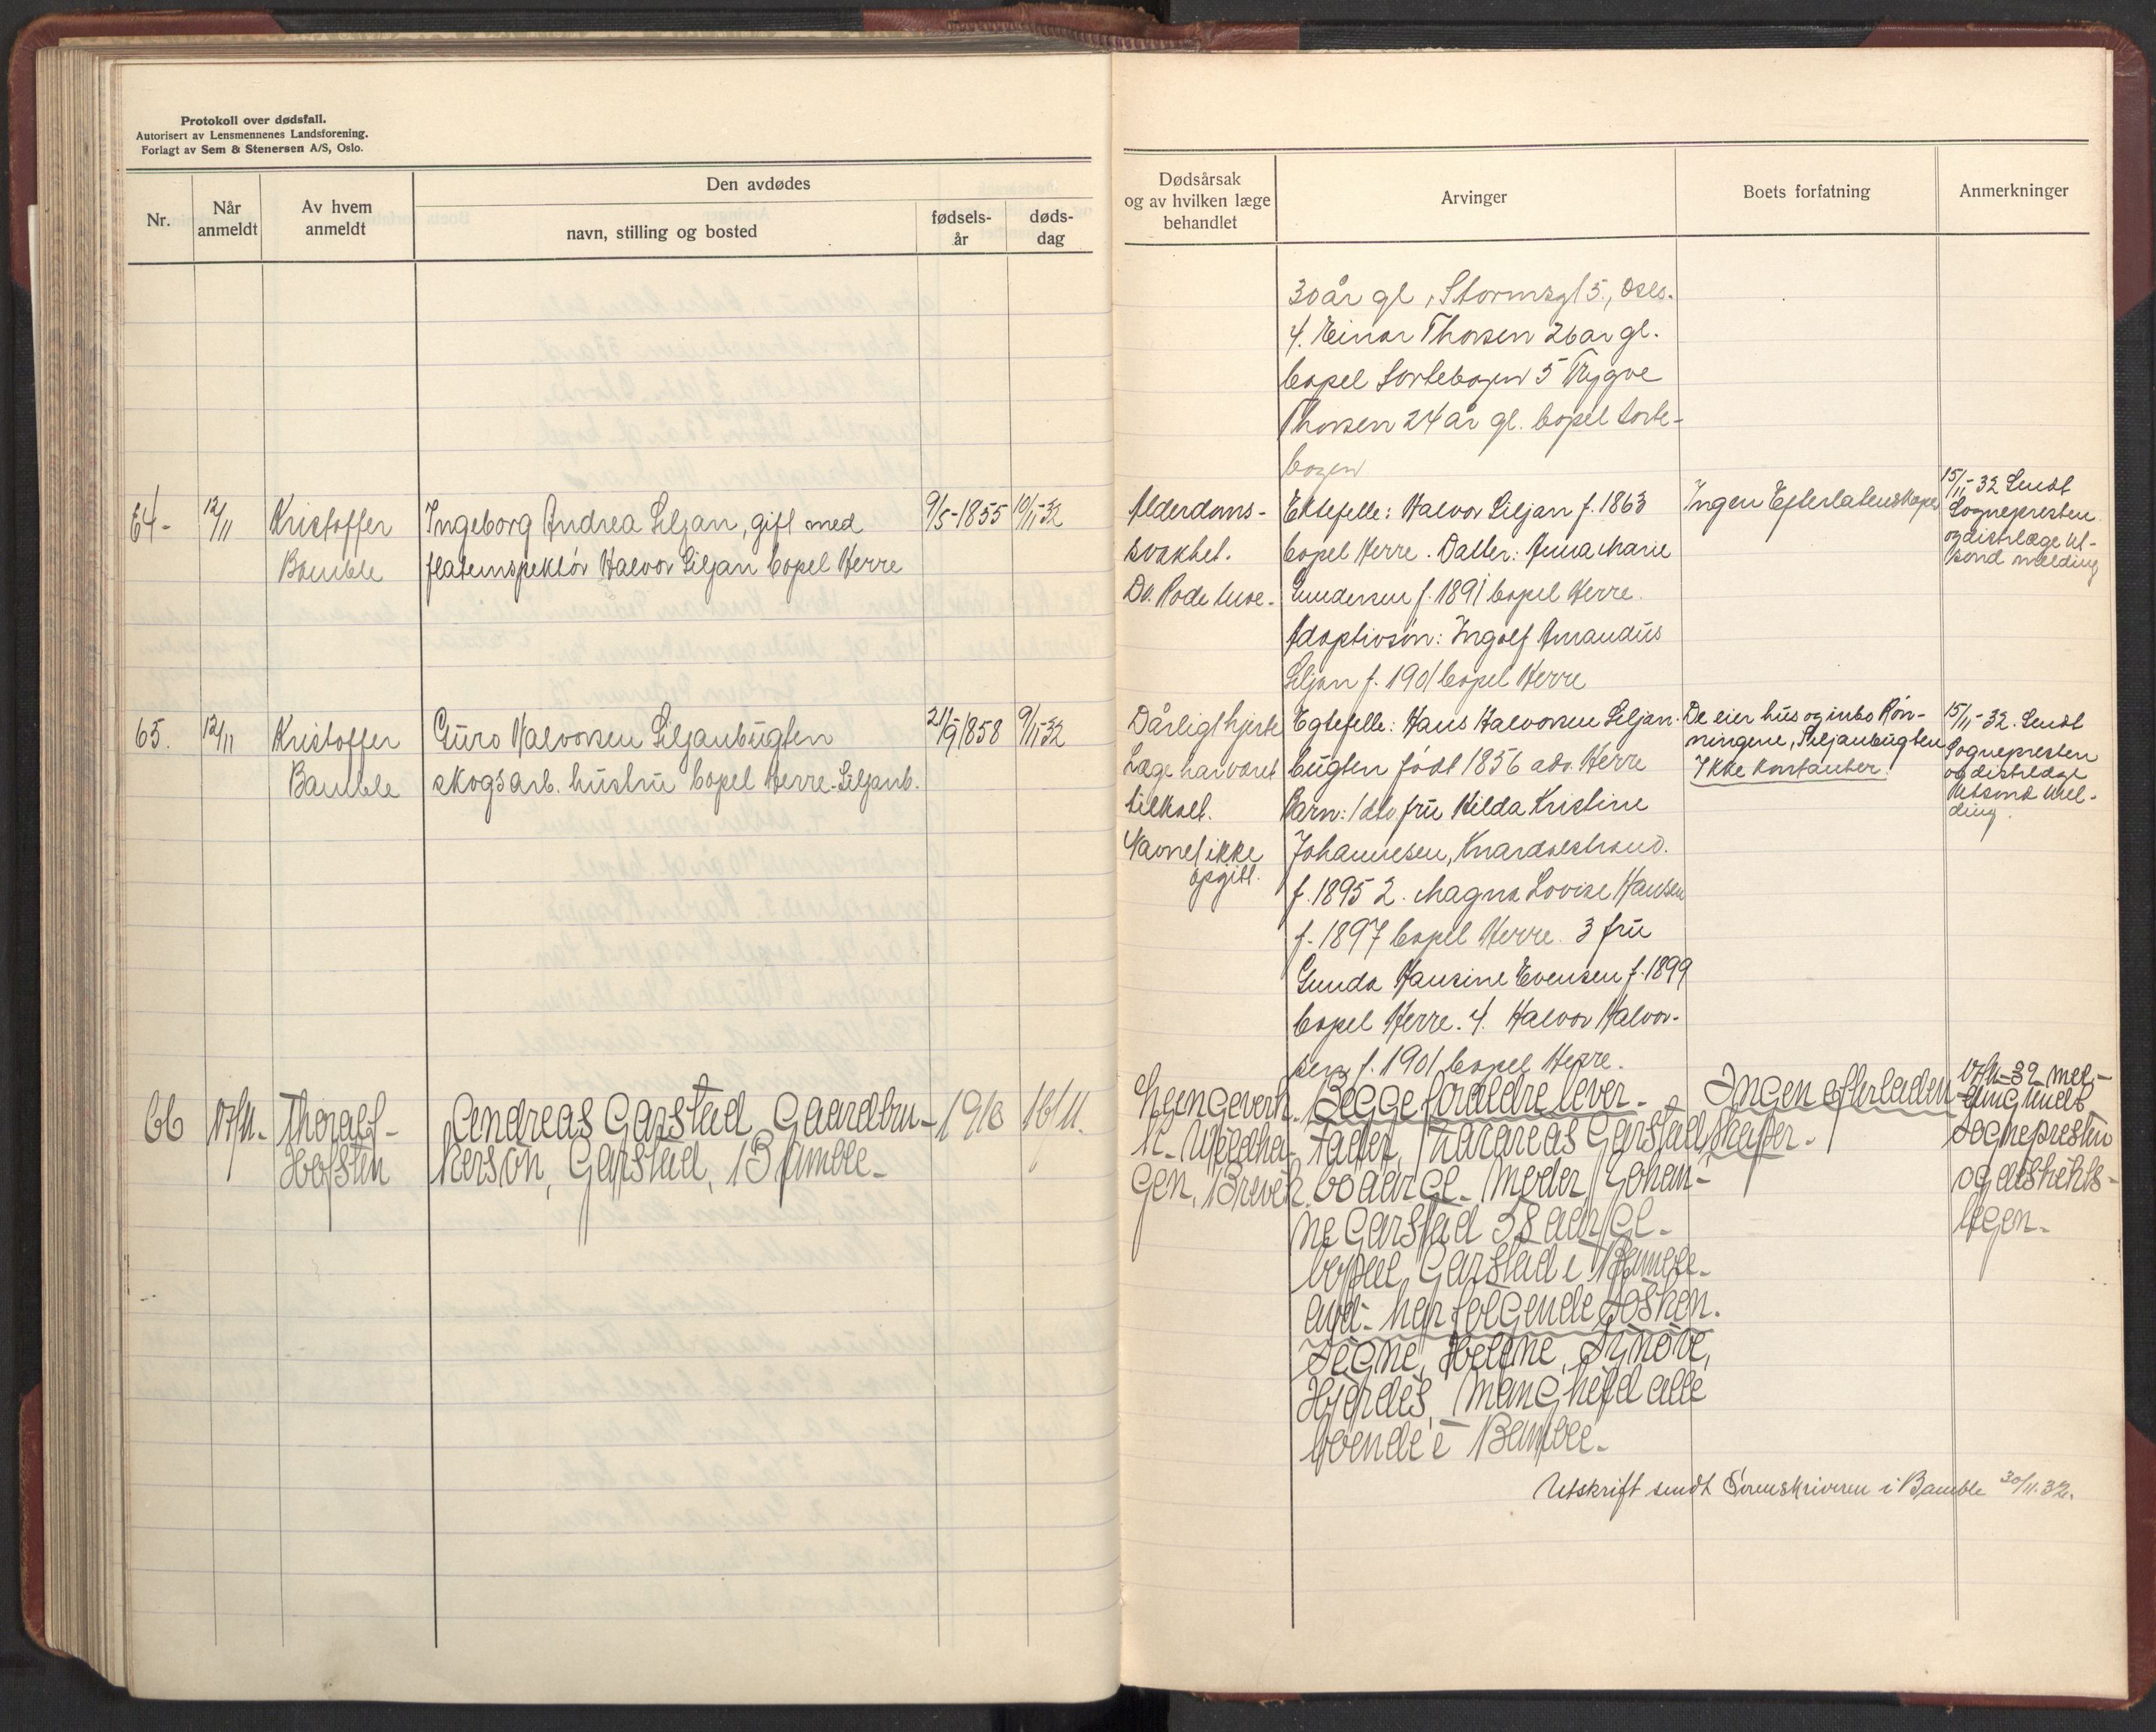 Protokoll over dødsfall.
Autorisert av Lensmennenes Landsforening.
Forlagt av Sem & Stenersen A/S, Oslo.
Nr.
Når
anmeldt
Av hvem
anmeldt
Den avdødes
navn, stilling og bosted
fødsels-
år
døds-
dag
Dødsårsak
og av hvilken læge
behandlet
Arvinger
Boets forfatning
Anmerkninger
30 år gl, Stormsgt 5., Oslo.
4. Einar Thorsen 26 år gl.
bopel Sortebogen 5 Trygve
Thorsen 24 år gl. bopel Sorte-
bogen
64-
12/11
Kristoffer
Bamble
Ingeborg Andrea Siljan, gift med
fløteinspektør Halvor Siljan bopel Herre
9/5-1855
10/11-32
Alderdoms-
svakhet.
Dr. Rode
Ektefelle: Halvor Siljan f. 1863
bopel Herre. Datter: Anna Marie
Gundersen f. 1891 bopel Herre.
Adoptivsøn: Ingolf Amandus
Siljan f. 1901 bopel Herre
Ingen Efterlatenskaper
15/11-32 Sendt
Sognepresten
og distrlæge ut-
sond melding
65.
12/11
Kristoffer
Bamble
Guro Halvorsen Siljanbugten
skogsarb. hustru bopel Herre-Siljanb.
21/9 1858
9/11-32
Dårlig hjerte
Læge har været
tilkalt.
Navnet ikke
opgitt.
Egtefelle: Hans Halvorsen Siljan-
bugten født 1856 adr. Herre
Barn: 1 dtr. fru Hilda Kristine
Johannesen, Knardalstrand.
f. 1895 2. Magna Lovise Hansen
f. 1897 bopel Herre. 3 fru
Gunda Hansine Evensen f. 1899
bopel Herre. 4. Halvor Halvor-
sen f. 1901 bopel Herre.
De eier hus og inbo Røn-
ningene, Siljanbugten
Ikke kontanter.
15/11-32. Sendt
Sognepresten
og distrlæge
utsond mel-
ding.
66
17/11.
Thoralf
Hofsten
Andreas Garstad Gaardbru-
kersøn, Garstad, Bamble-
1913
16/11.
gen, Brevik.
Begge foraldre lever.
Fader, Zakarias Garstad
60 aar gl. Moder, Johan-
ne Garstad 58 aar gl.-
bopæl, Garstad i Bamble-
avd- har følgende søsken.
Signe, Helene, Synøve,
Hjørdis, Manghild alle
boende i Bamble-
Ingen efterladen
skaper.
17/11-32 mel-
ding sendt
Sognepresten
og distrikts-
legen-
Utskrift sendt Sorenskriveren i Bamble 30/11.32.